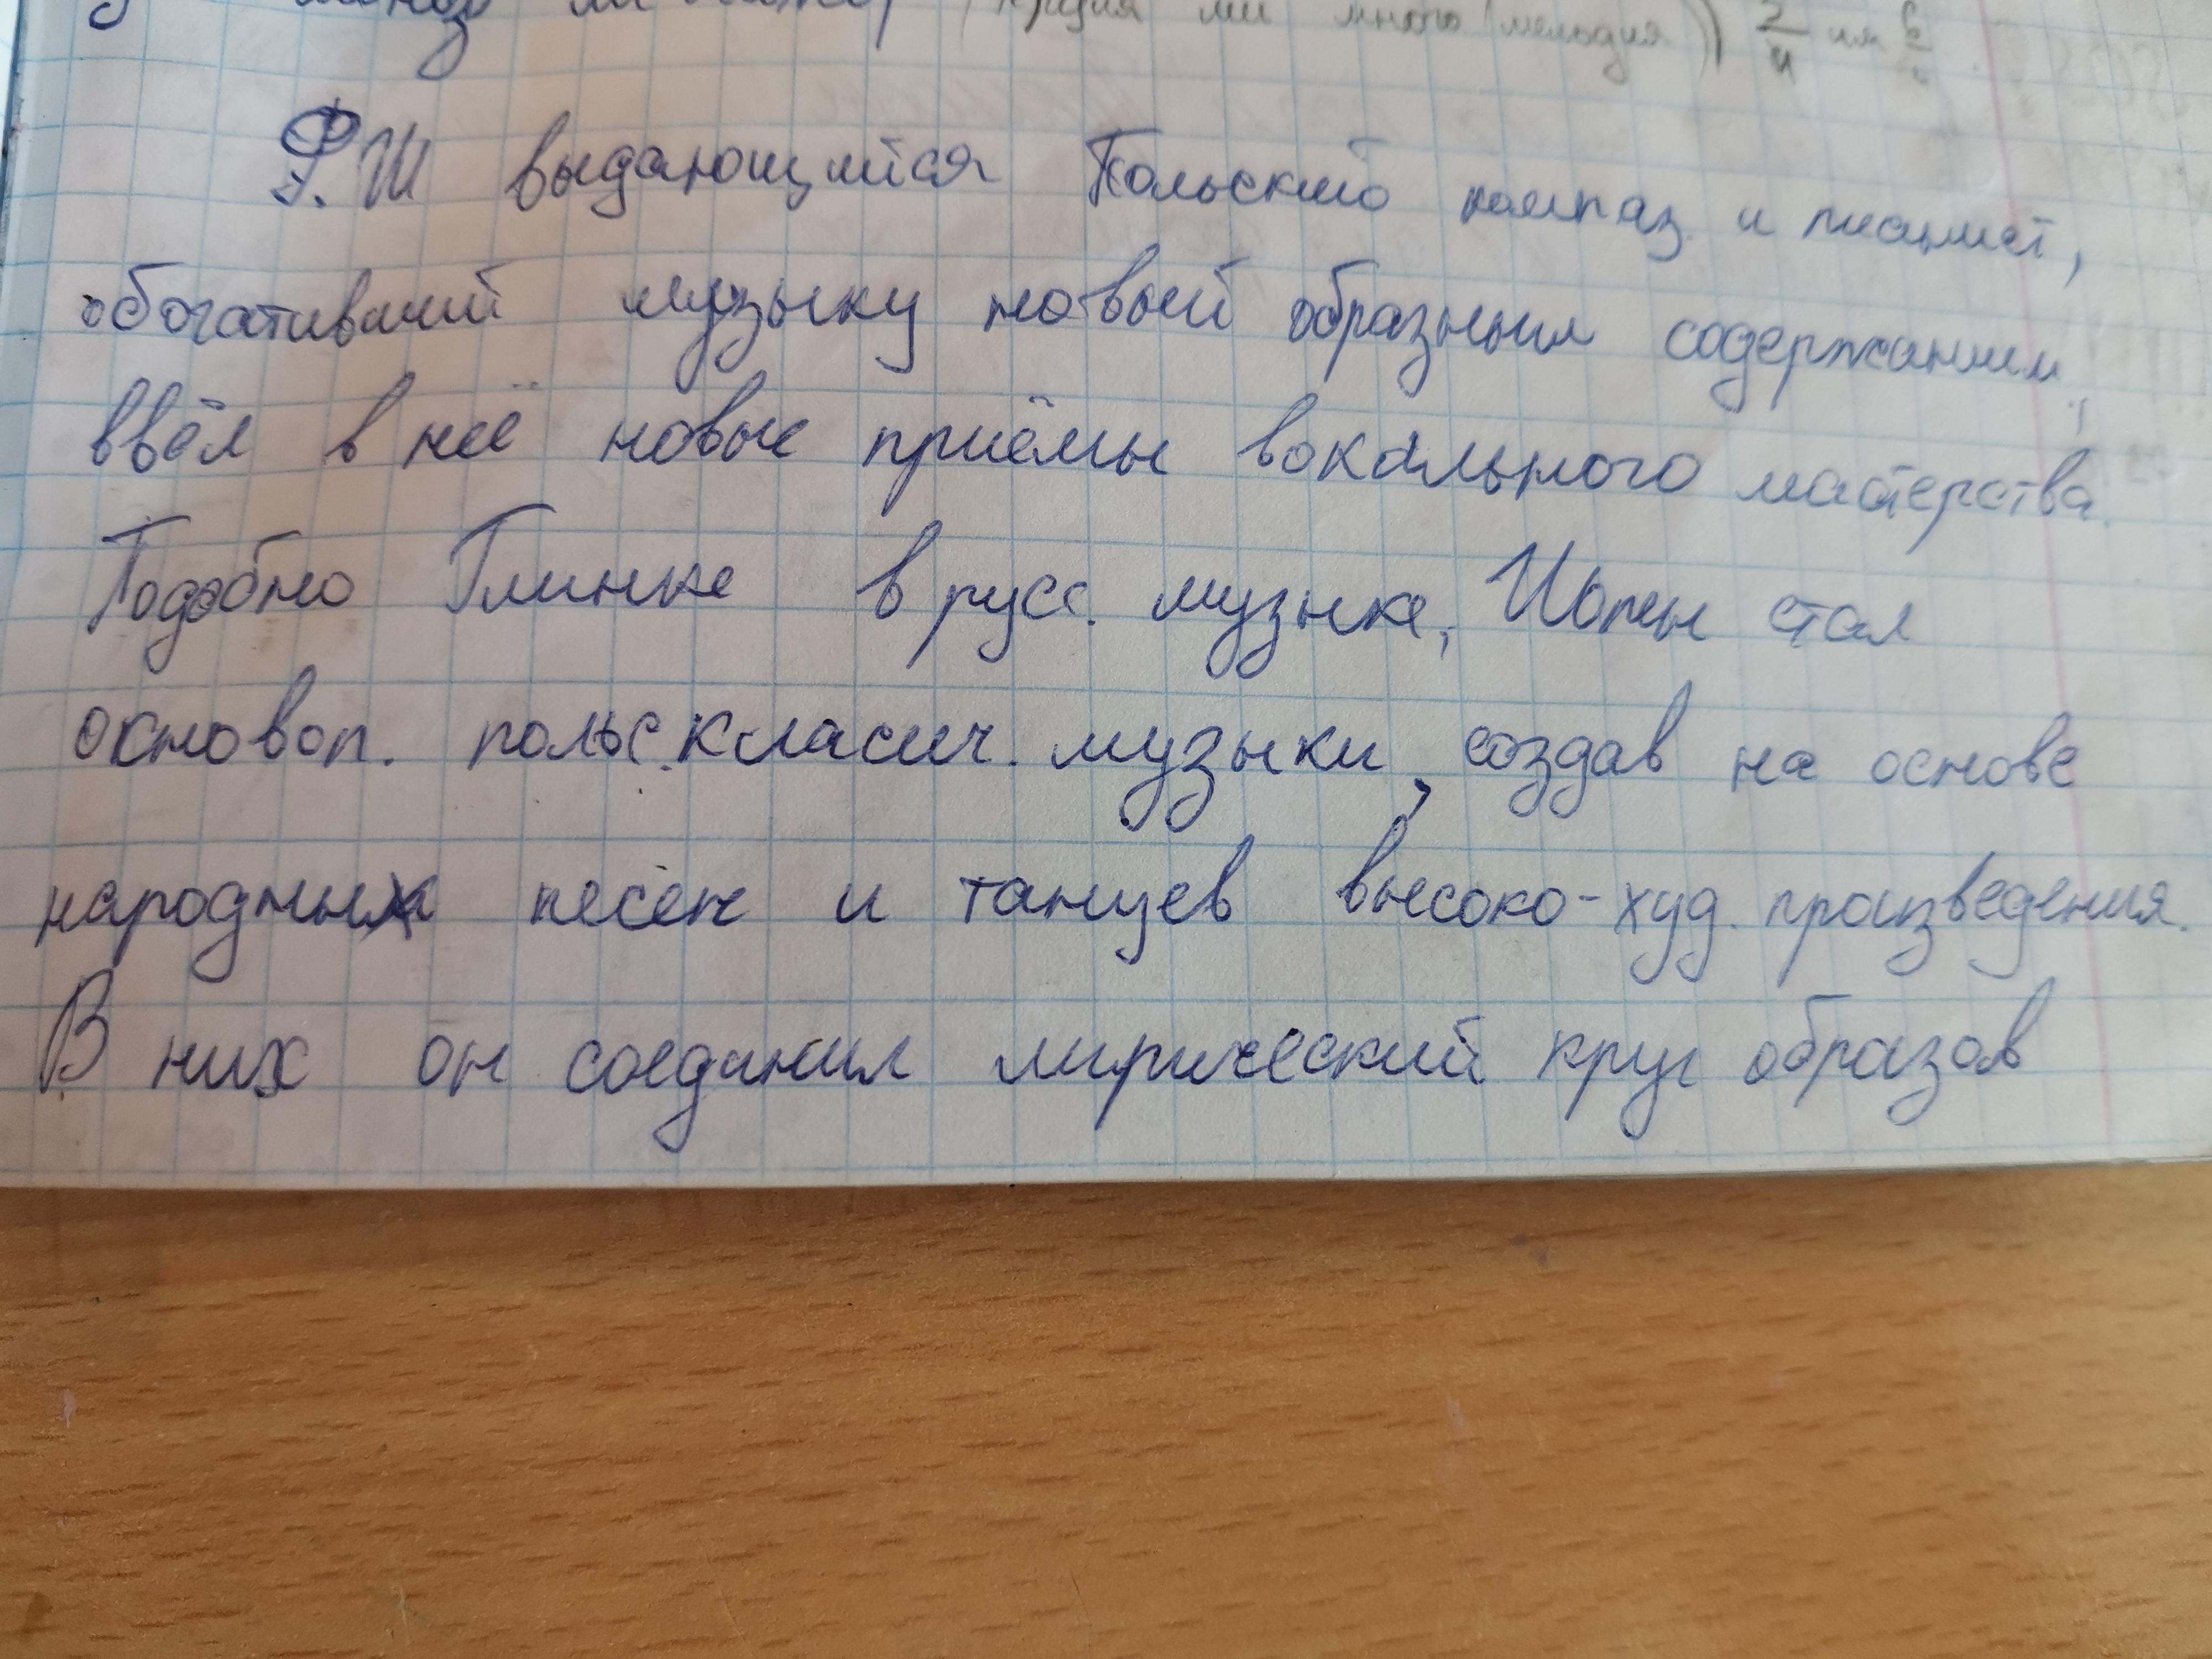 2/4 или 6/
Ф.Ш выдающийся Польский компаз. и пианист,
обогативший музыку новый образным содержанием,
ввёл в неё новые приёмы вокального мастерства.
Подобно Глинке в русс. музыке, Шопен стал
основоп. польс. класич. музыки, создав на основе
народных песен и танцев высоко-худ. произведения.
В них он соединил лирический круг образов